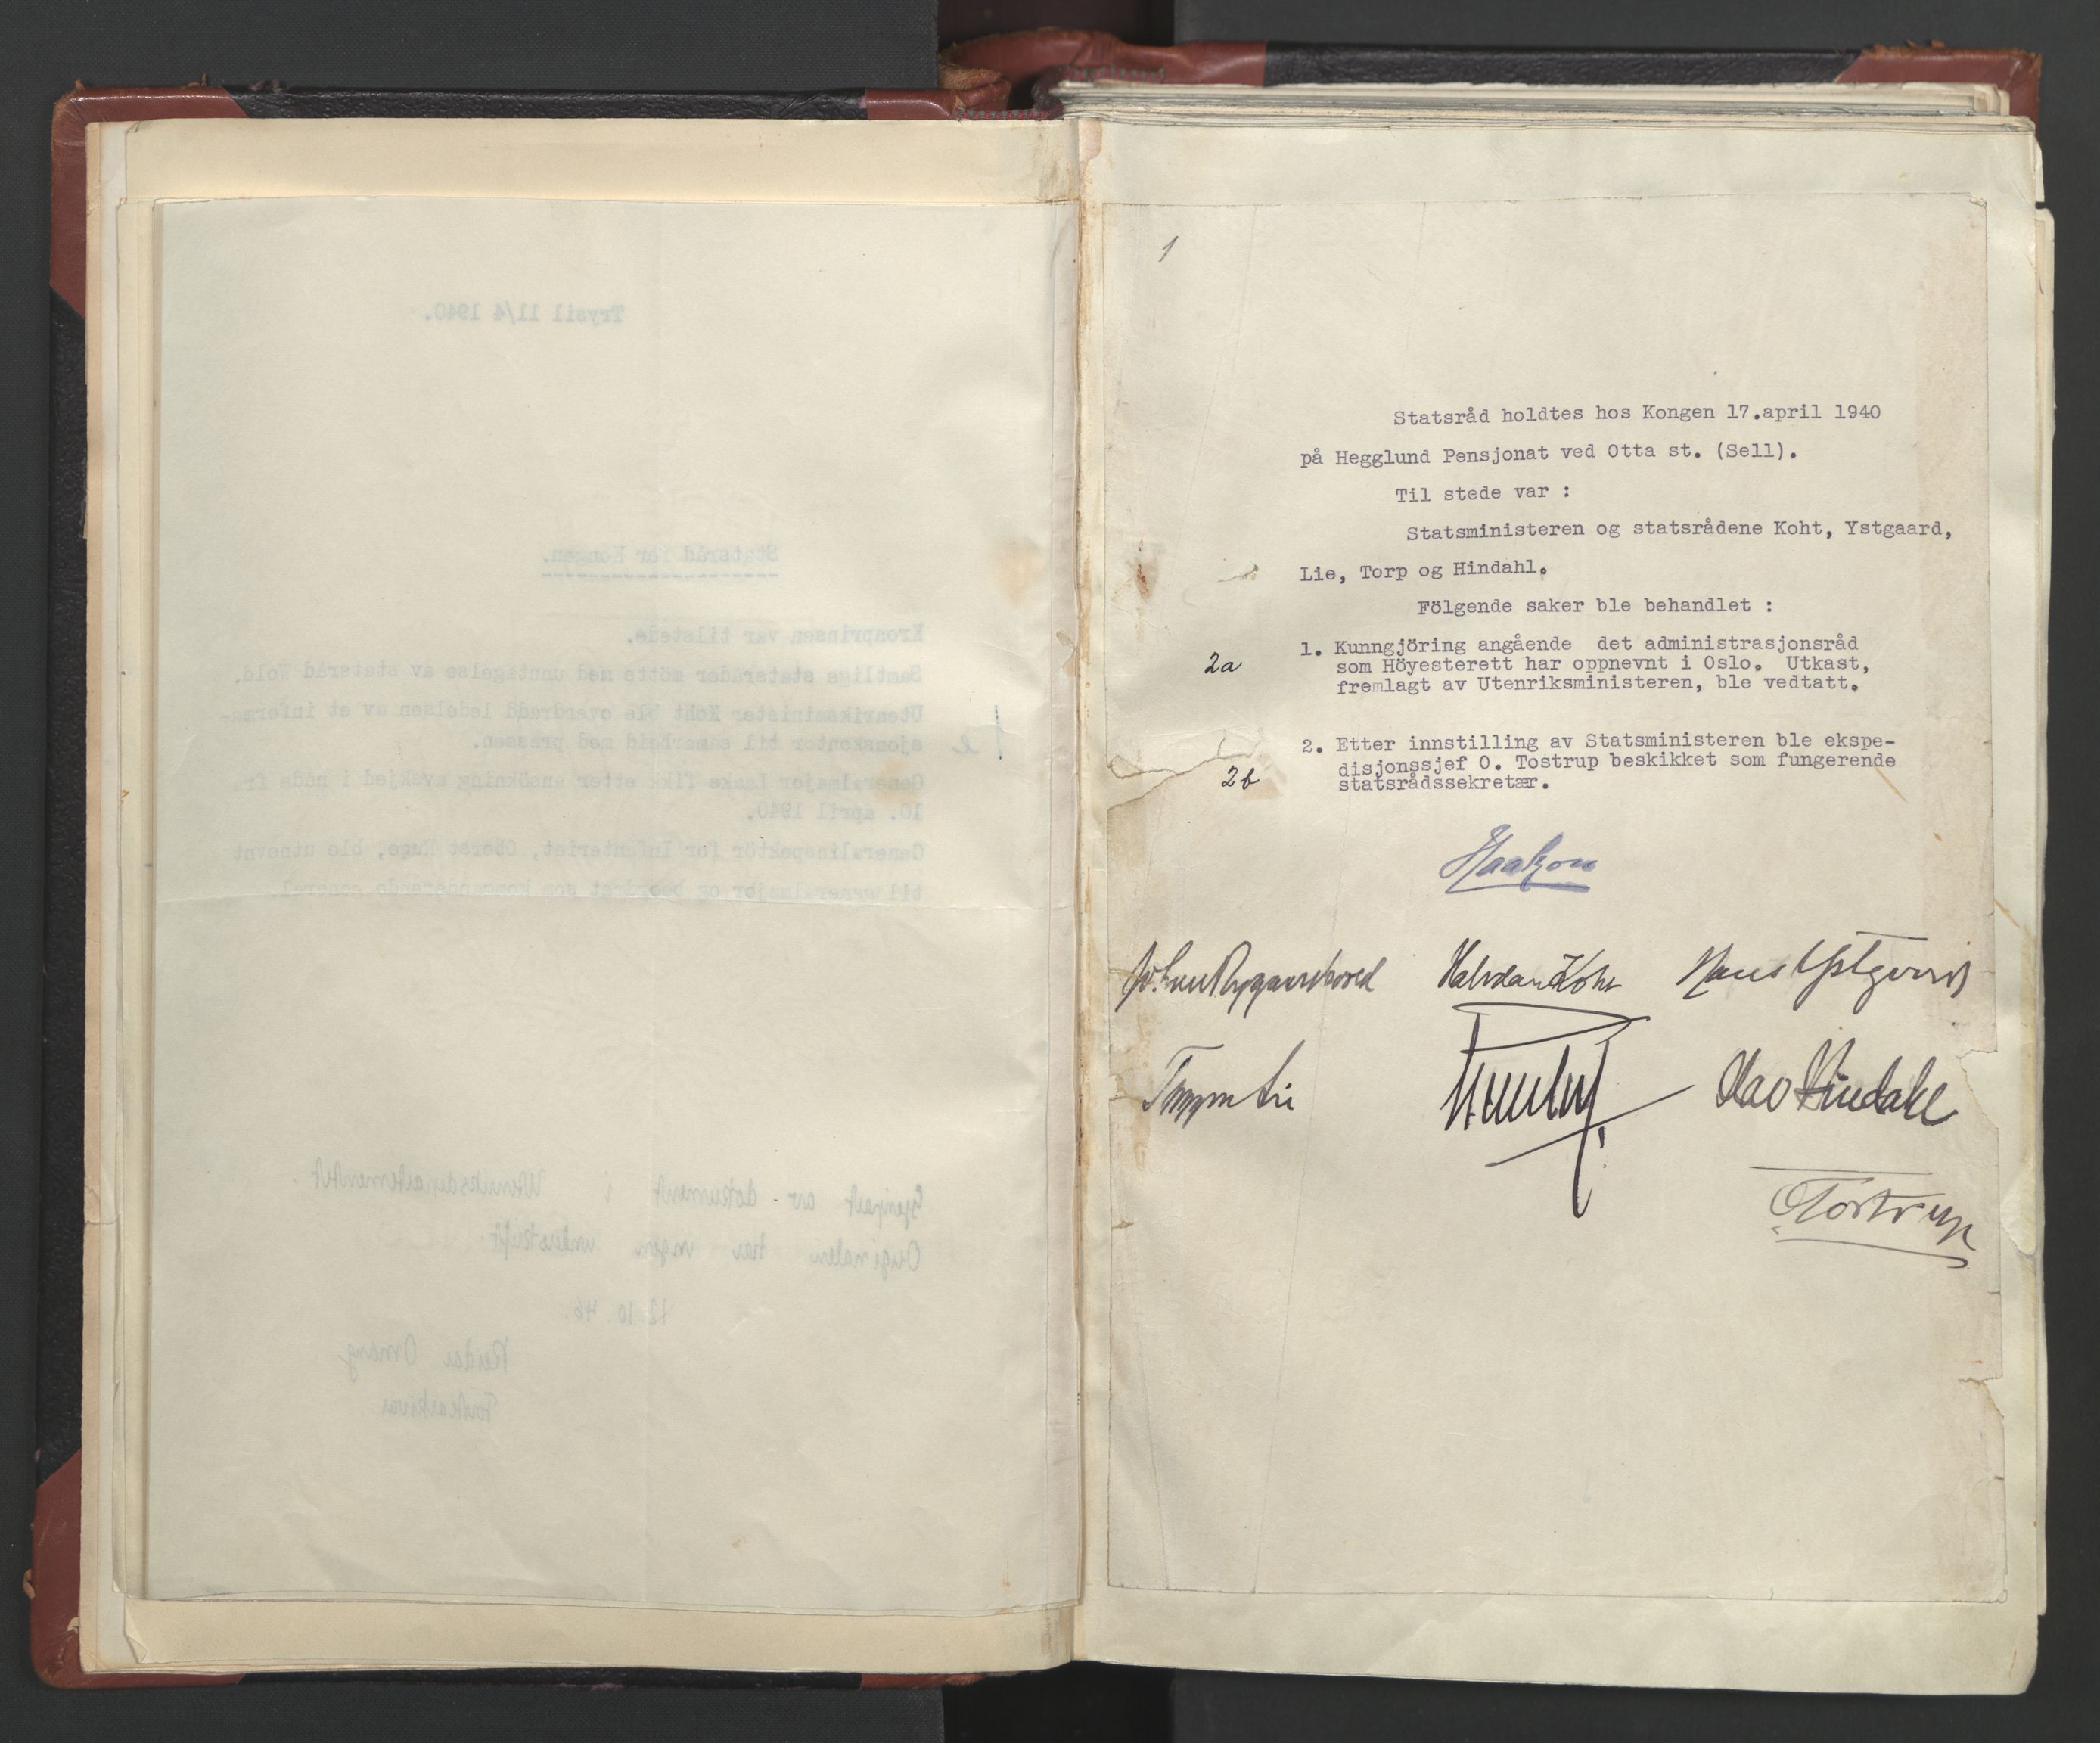 Trysil 11/4 1940.
Statsråd for Kongen.
Kronprinsen var tilstede.
Samtlige statsråder mötte med unntagelse av statsråd Wold.
Utenriksminister Koht ble overdradd ledelsen av et informa-
sjonskontor til samarbeid med pressen.
1 e
Generalmajor Laake fikk etter ansökning avskjed i nåde fra
10. april 1940.
Generalinspektör for Infanteriet, Oberst Ruge, ble utnevnt
til generalmajor og beordret som kommanderende general.
Gjenpart av dokument i Utenriksdepartementet.
Originalen har ingen underskrift.
12.10.46
Reidar Omang
1
Statsråd holdtes hos Kongen 17.april 1940
på Hegglund Pensjonat ved Otta st. (Sell).
Til stede var :
Statsministeren og statsrådene Koht, Ystgaard,
Lie, Torp og Hindahl.
Fölgende saker ble behandlet :
1. Kunngjöring angående det administrasjonsråd
2a som Höyesterett har oppnevnt i Oslo. Utkast,
fremlagt av Utenriksministeren, ble vedtatt.
2. Etter innstilling av Statsministeren ble ekspe-
disjonssjef O. Tostrup beskikket som fungerende
2b statsrådssekretær.
Haakon
Johan Nygaardsvold Halvdan Koht Hans Ystgaard
Trygve Lie Olav Hindahl
OTostrup